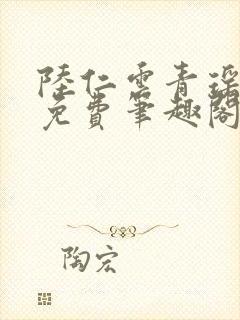 陸仁雲青瑶
免費筆趣閣
陶宏